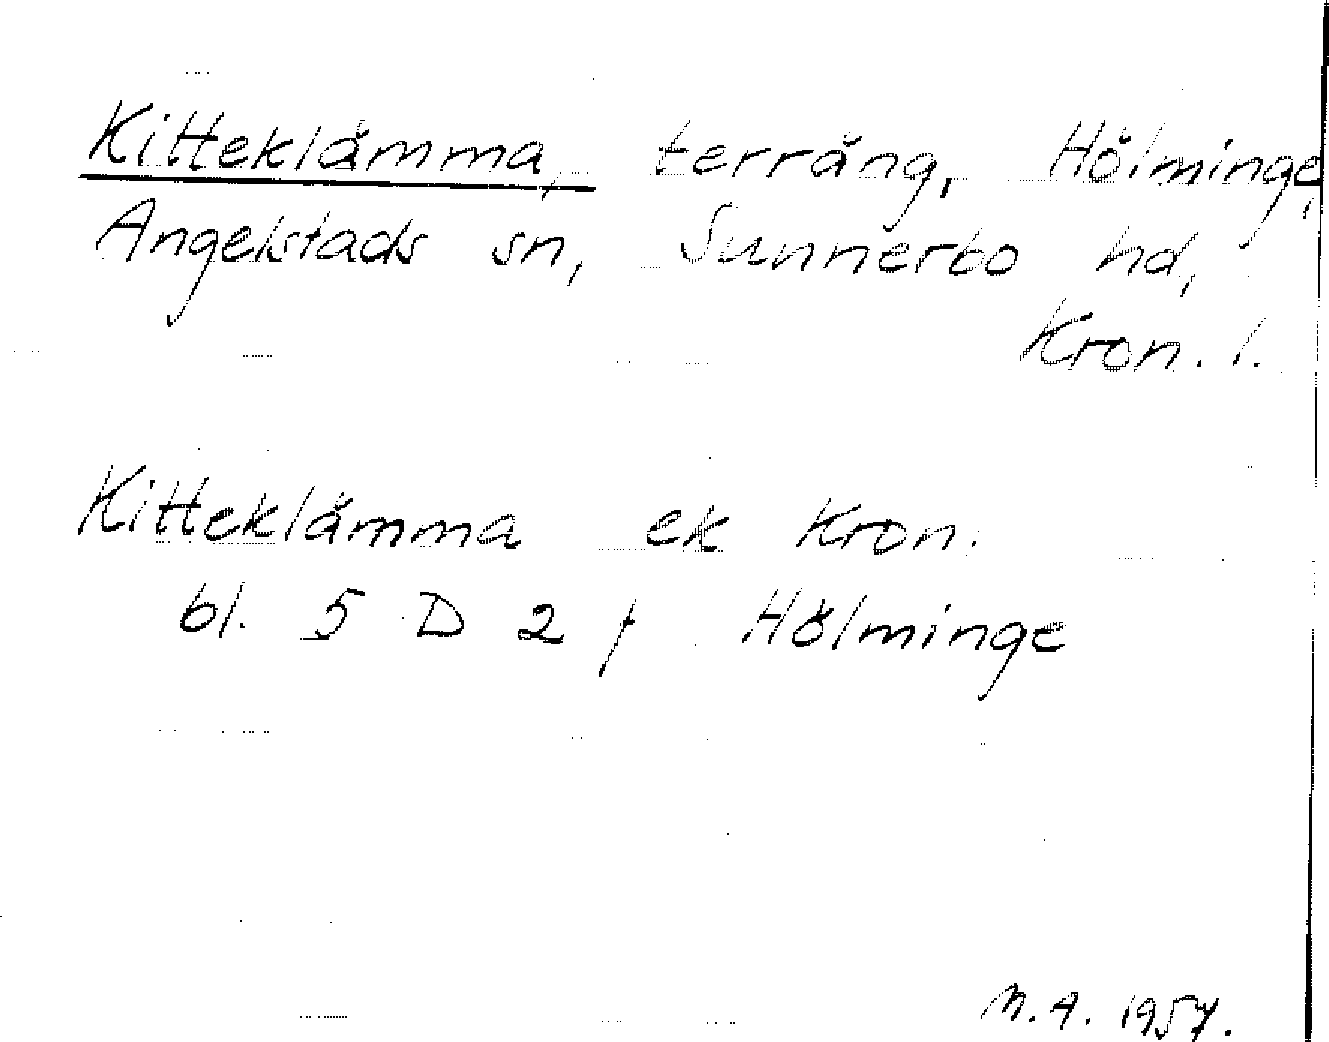 Kitteklämma, terräng, Hölminge,
Angelstads sn, Sunnerbo hd,
Kron. l.
Kitteklämma ek Kron.
bl. 5 D 2 f Hölminge
M.A. 1957.